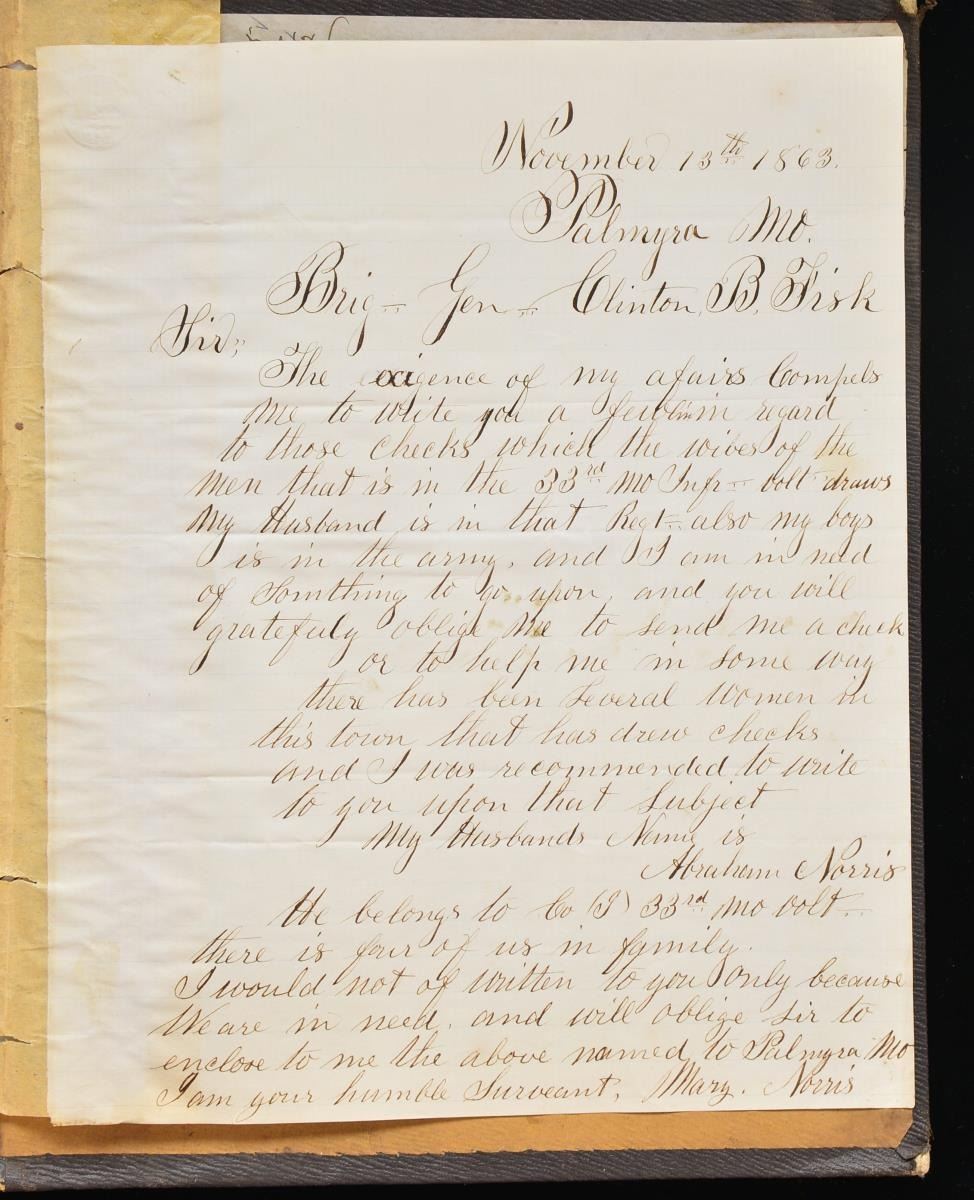 November 13th 1863.
Palmyra Mo.
Brig Gen Clinton B. Fisk
Sir,
The exigence of my afairs Compels
me to write you a few lines in regard
to those checks which the wives of the
men that is in the 33rd Mo Infr volt draws
My Husband is in that Regt also my boys
is in the army, and I am in need
of Somthing to go upon, and you will
gratefuly oblige me to send me a check
or to help me in some way
there has been several women in
this town that has drew checks
and I was recommended to write
to you upon that Subject
My Husbands Name is
Abraham Norris
He belongs to Co (I) 33rd Mo volt
there is four of us in family.
I would not of written to you Only because
We are in need. and will oblige sir to
enclose to me the above named, to Palmyra Mo
I am your humble Surveant, Mary. Norris